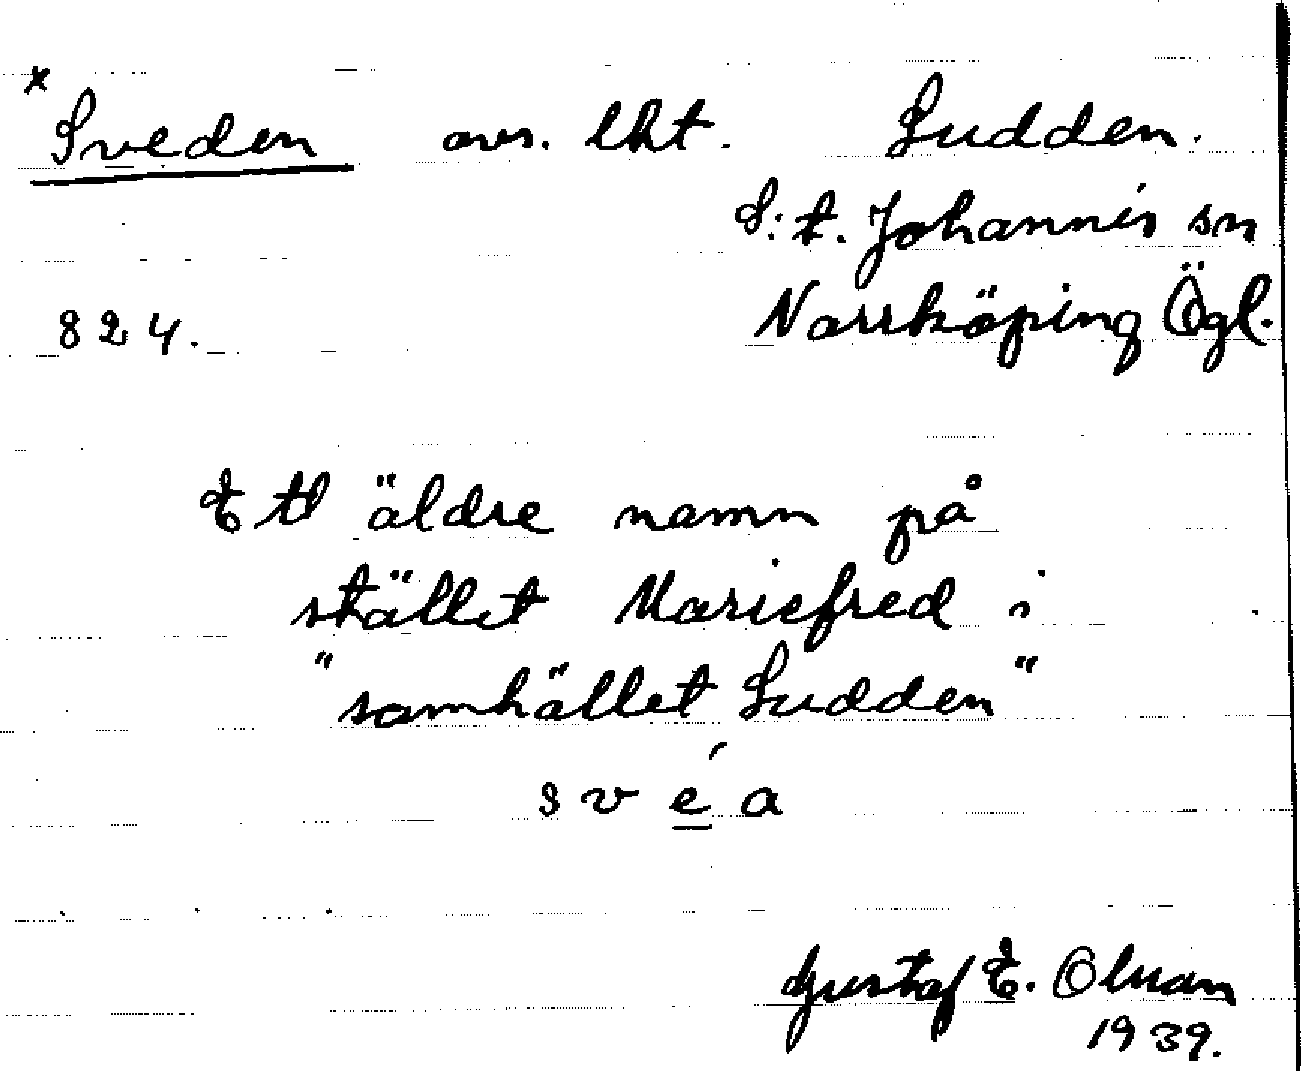 × Sveden avs. lht. Sudden.
S:t. Johannis sn
824. Norrköping Ögl.
Ett äldre namn på
stället Mariefred i
"samhället Sudden"
svéa
Gustaf E. Olman
1939.